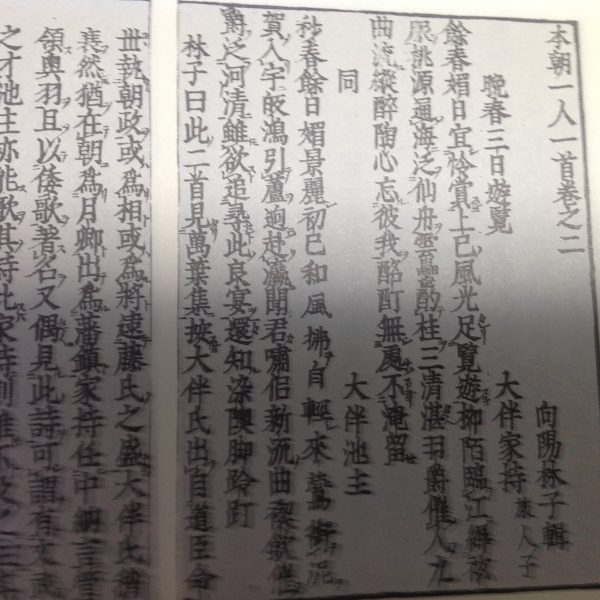 本朝一人一首卷之二
向陽林子輯
晩春三日遊覽
大伴家持 旅人子
餘春媚日宜怜賞上巳風光足覽遊柳陌臨江縟袨
服桃源通海泛仙舟雲罍酌桂三清湛羽爵催人九
曲流縱醉陶心忘彼我酩酊無處不淹留
同 大伴池主
杪春餘日媚景麗初巳和風拂自輕來燕銜泥
賀入宇皈鴻引蘆逈赴瀛聞君嘯侶新流曲禊飲催
爵泛河清雖欲追尋此良宴還知染懊脚跉䟓
林子曰此二首見萬葉集按大伴氏出自道臣命
世執朝政或爲相或爲將逮藤氏之盛大伴氏漸
衰然猶在朝爲月卿出爲藩鎮家持任中納言管
領奥羽且以倭歌著名又偶見此詩可謂有文武
之才池主亦能歌其詩比家持則雖不及之